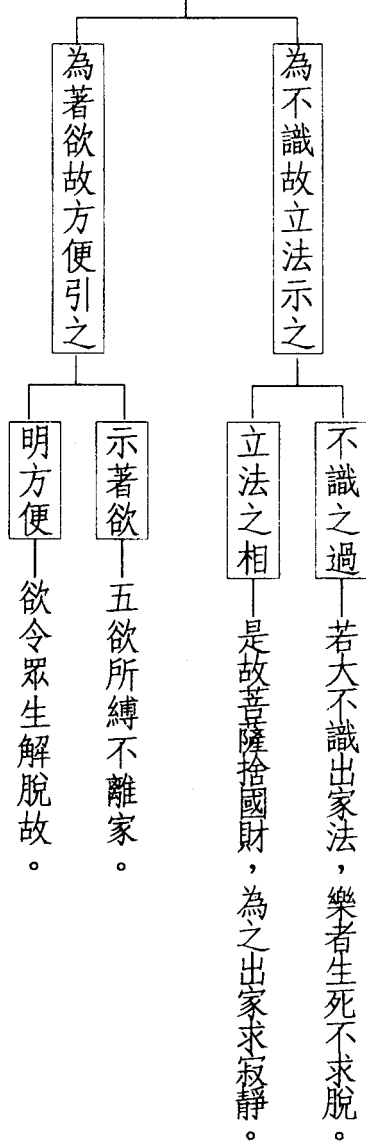 為不識故立法示之
不識之過
若大不識出家法，樂者生死不求脫。
立法之相
是故菩薩捨國財，為之出家求寂靜。
為著欲故方便引之
示著欲
五欲所縛不離家。
明方便
欲令眾生解脫故。